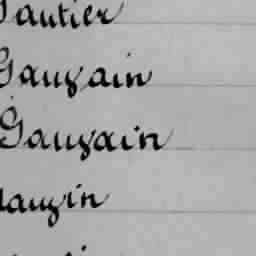 Gautier
Gauzain
Gauzain
Gauzin